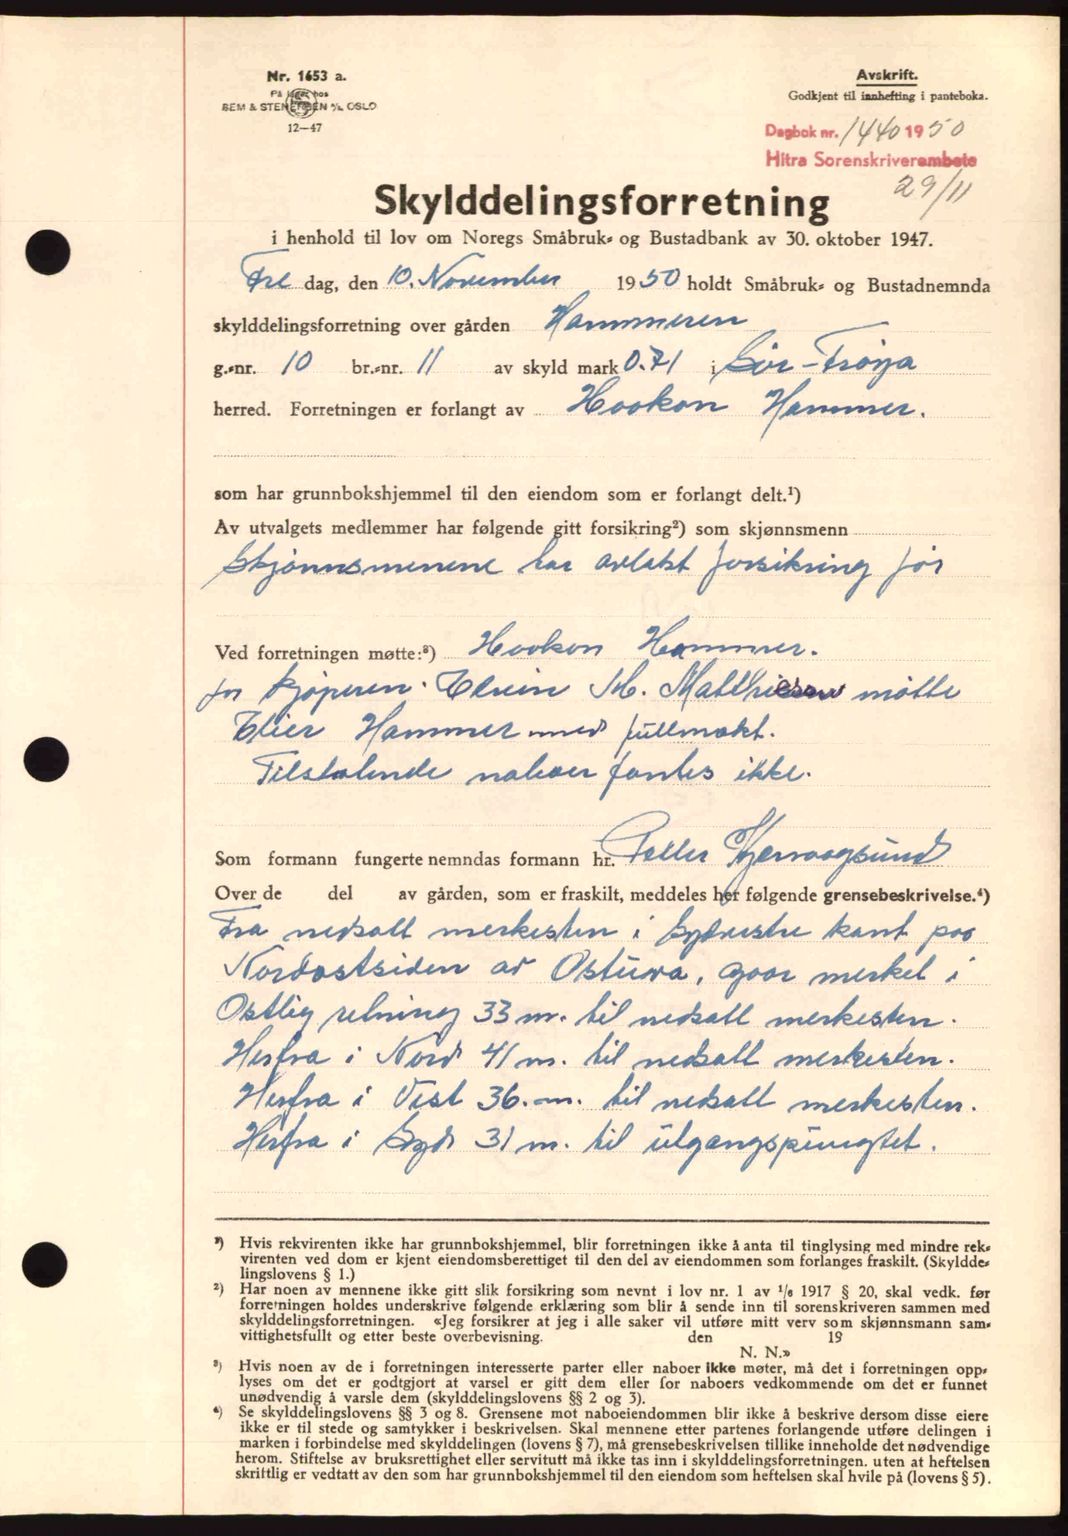 Nr. 1653 a.
På lager hos
SEM & STENERSEN A/S, OSLO
12—47
Avskrift.
Godkjent til innhefting i panteboka.
Dagbok nr. 1440 1950
Hitra Sorenskriverembete
29/11
Skylddelingsforretning
i henhold til lov om Noregs Småbruk- og Bustadbank av 30. oktober 1947.
Fre dag, den 10. November 1950 holdt Småbruk- og Bustadnemnda
skylddelingsforretning over gården Hammeren
g.-nr. 10 br.-nr. 11 av skyld mark 0.71 i Sör-Fröya
herred. Forretningen er forlangt av Haakon Hammer.
som har grunnbokshjemmel til den eiendom som er forlangt delt.¹)
Av utvalgets medlemmer har følgende gitt forsikring²) som skjønnsmenn
Skjønnsmenene har avlakt forsikring för
Ved forretningen møtte:³) Haakon Hammer.
for kjøperen. M. Mathiesen møtte
Hammer med fullmakt.
Tilstøtende naboer fantes ikke.
Som formann fungerte nemndas formann hr. Petter Kjervaagsund
Over de del av gården, som er fraskilt, meddeles her følgende grensebeskrivelse.⁴)
Fra nedsatt merkesten i Sydvestre kant paa
Nordöstsiden av , gaar merket i
Östlig retning 33 m. til nedsatt merkesten.
Herfra i Nord 41 m. til nedsatt merkesten.
Herfra i Vest 36. m. til nedsatt merkesten.
Herfra i Syd 31 m. til utgangspungtet.
¹) Hvis rekvirenten ikke har grunnbokshjemmel, blir forretningen ikke å anta til tinglysing med mindre rek-
virenten ved dom er kjent eiendomsberettiget til den del av eiendommen som forlanges fraskilt. (Skyldde-
lingslovens § 1.)
²) Har noen av mennene ikke gitt slik forsikring som nevnt i lov nr. 1 av 1/6 1917 § 20, skal vedk. før
forretningen holdes underskrive følgende erklæring som blir å sende inn til sorenskriveren sammen med
skylddelingsforretningen. «Jeg forsikrer at jeg i alle saker vil utføre mitt verv som skjønnsmann sam-
vittighetsfullt og etter beste overbevisning. den 19
N. N.»
³) Hvis noen av de i forretningen interesserte parter eller naboer ikke møter, må det i forretningen opp-
lyses om det er godtgjort at varsel er gitt dem eller for naboers vedkommende om det er funnet
unødvendig å varsle dem (skylddelingslovens §§ 2 og 3).
⁴) Se skylddelingslovens §§ 3 og 8. Grensene mot naboeiendommen blir ikke å beskrive dersom disse eiere
ikke er til stede og samtykker i beskrivelsen. Skal mennene etter partenes forlangende utføre delingen i
marken i forbindelse med skylddelingen (lovens § 7), må grensebeskrivelsen tillike inneholde det nødvendige
herom. Stiftelse av bruksrettighet eller servitutt må ikke tas inn i skylddelingsforretningen. uten at heftelsen
skriftlig er vedtatt av den som har grunnbokshjemmel til den eiendom som heftelsen skal hvile på (lovens § 5).